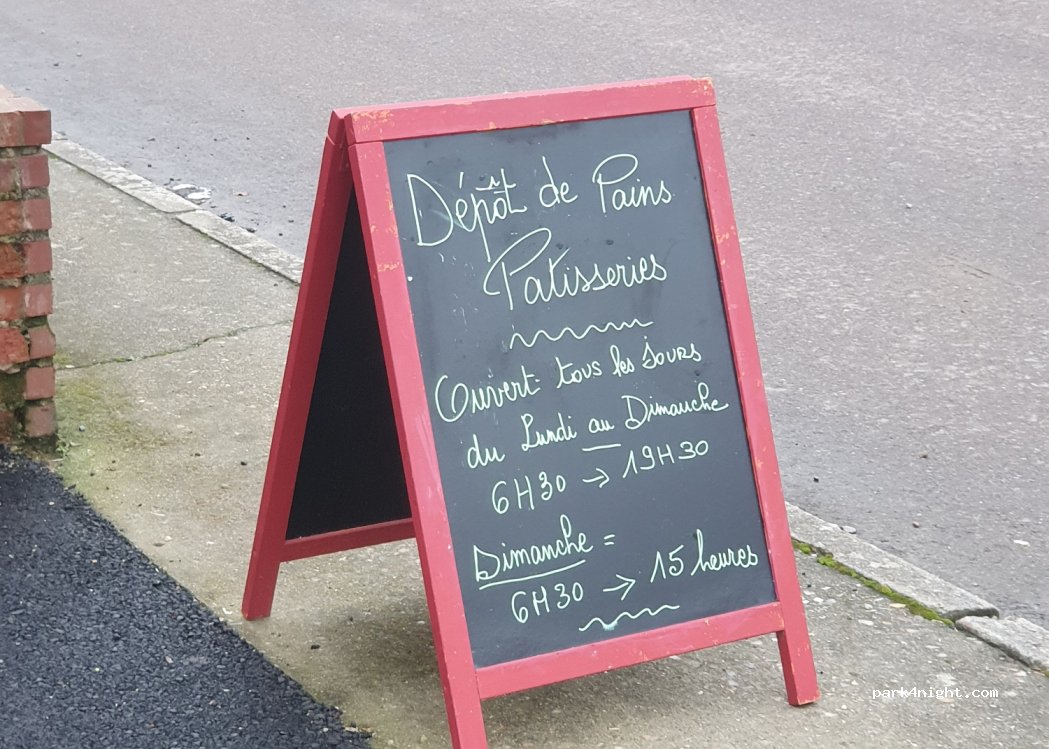 Dépôt de Pains
Patisseries
Ouvert tous les Jours
du Lundi au Dimanche
6H30 → 19H30
Dimanche =
6H30 → 15 heures
park4night.com